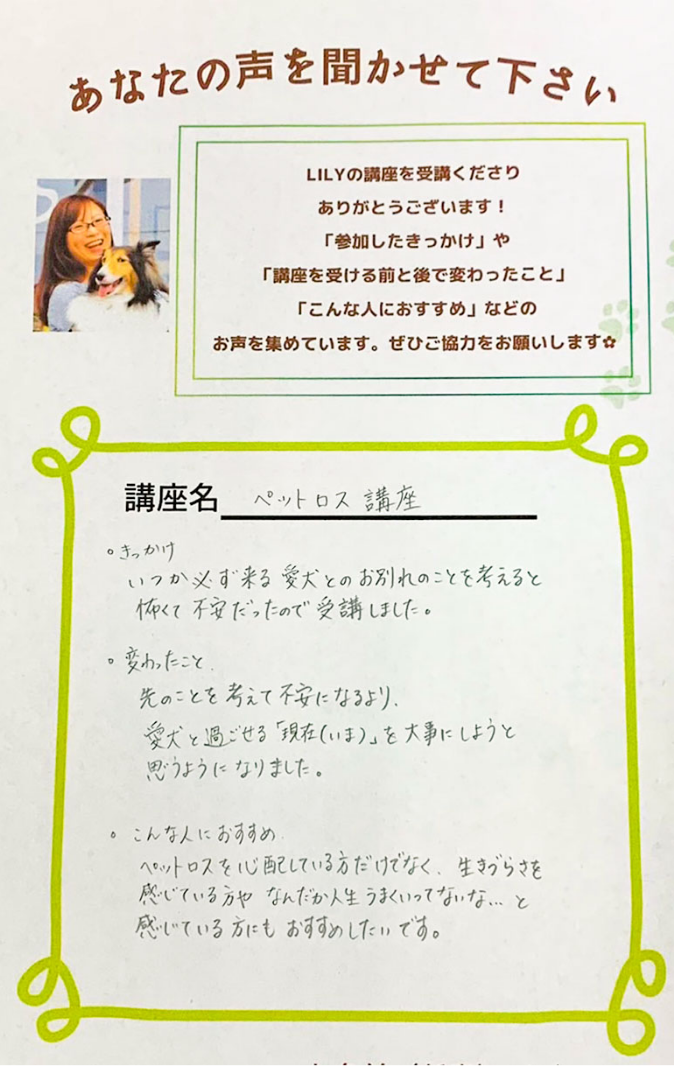 あなたの声を聞かせて下さい
LILYの講座を受講くださり
ありがとうございます！
「参加したきっかけ」や
「講座を受ける前と後で変わったこと」
「こんな人におすすめ」などの
お声を集めています。ぜひご協力をお願いします✿
講座名 ペットロス 講座
。きっかけ
いつか必ず来る愛犬とのお別れのことを考えると
怖くて不安だったので受講しました。
。変わったこと、
先のことを考えて不安になるより、
愛犬と過ごせる「現在(いま)」を大事にしようと
思うようになりました。
。こんな人におすすめ、
ペットロスを心配している方だけでなく、生きづらさを
感じている方や なんだか人生うまくいってないな…と
感じている方にも おすすめしたいです。